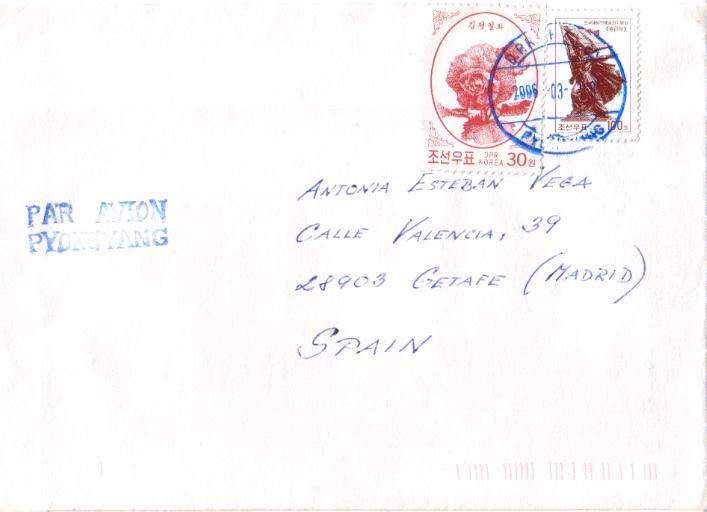 김정일화
조선우표 DPR KOREA 30원
조선우표 100원
D.P.R.
2006 -03-
PYONGYANG
PAR AVION
PYONGYANG
ANTONIA ESTEBAN VEGA
CALLE VALENCIA, 39
28903 GETAFE (MADRID)
SPAIN